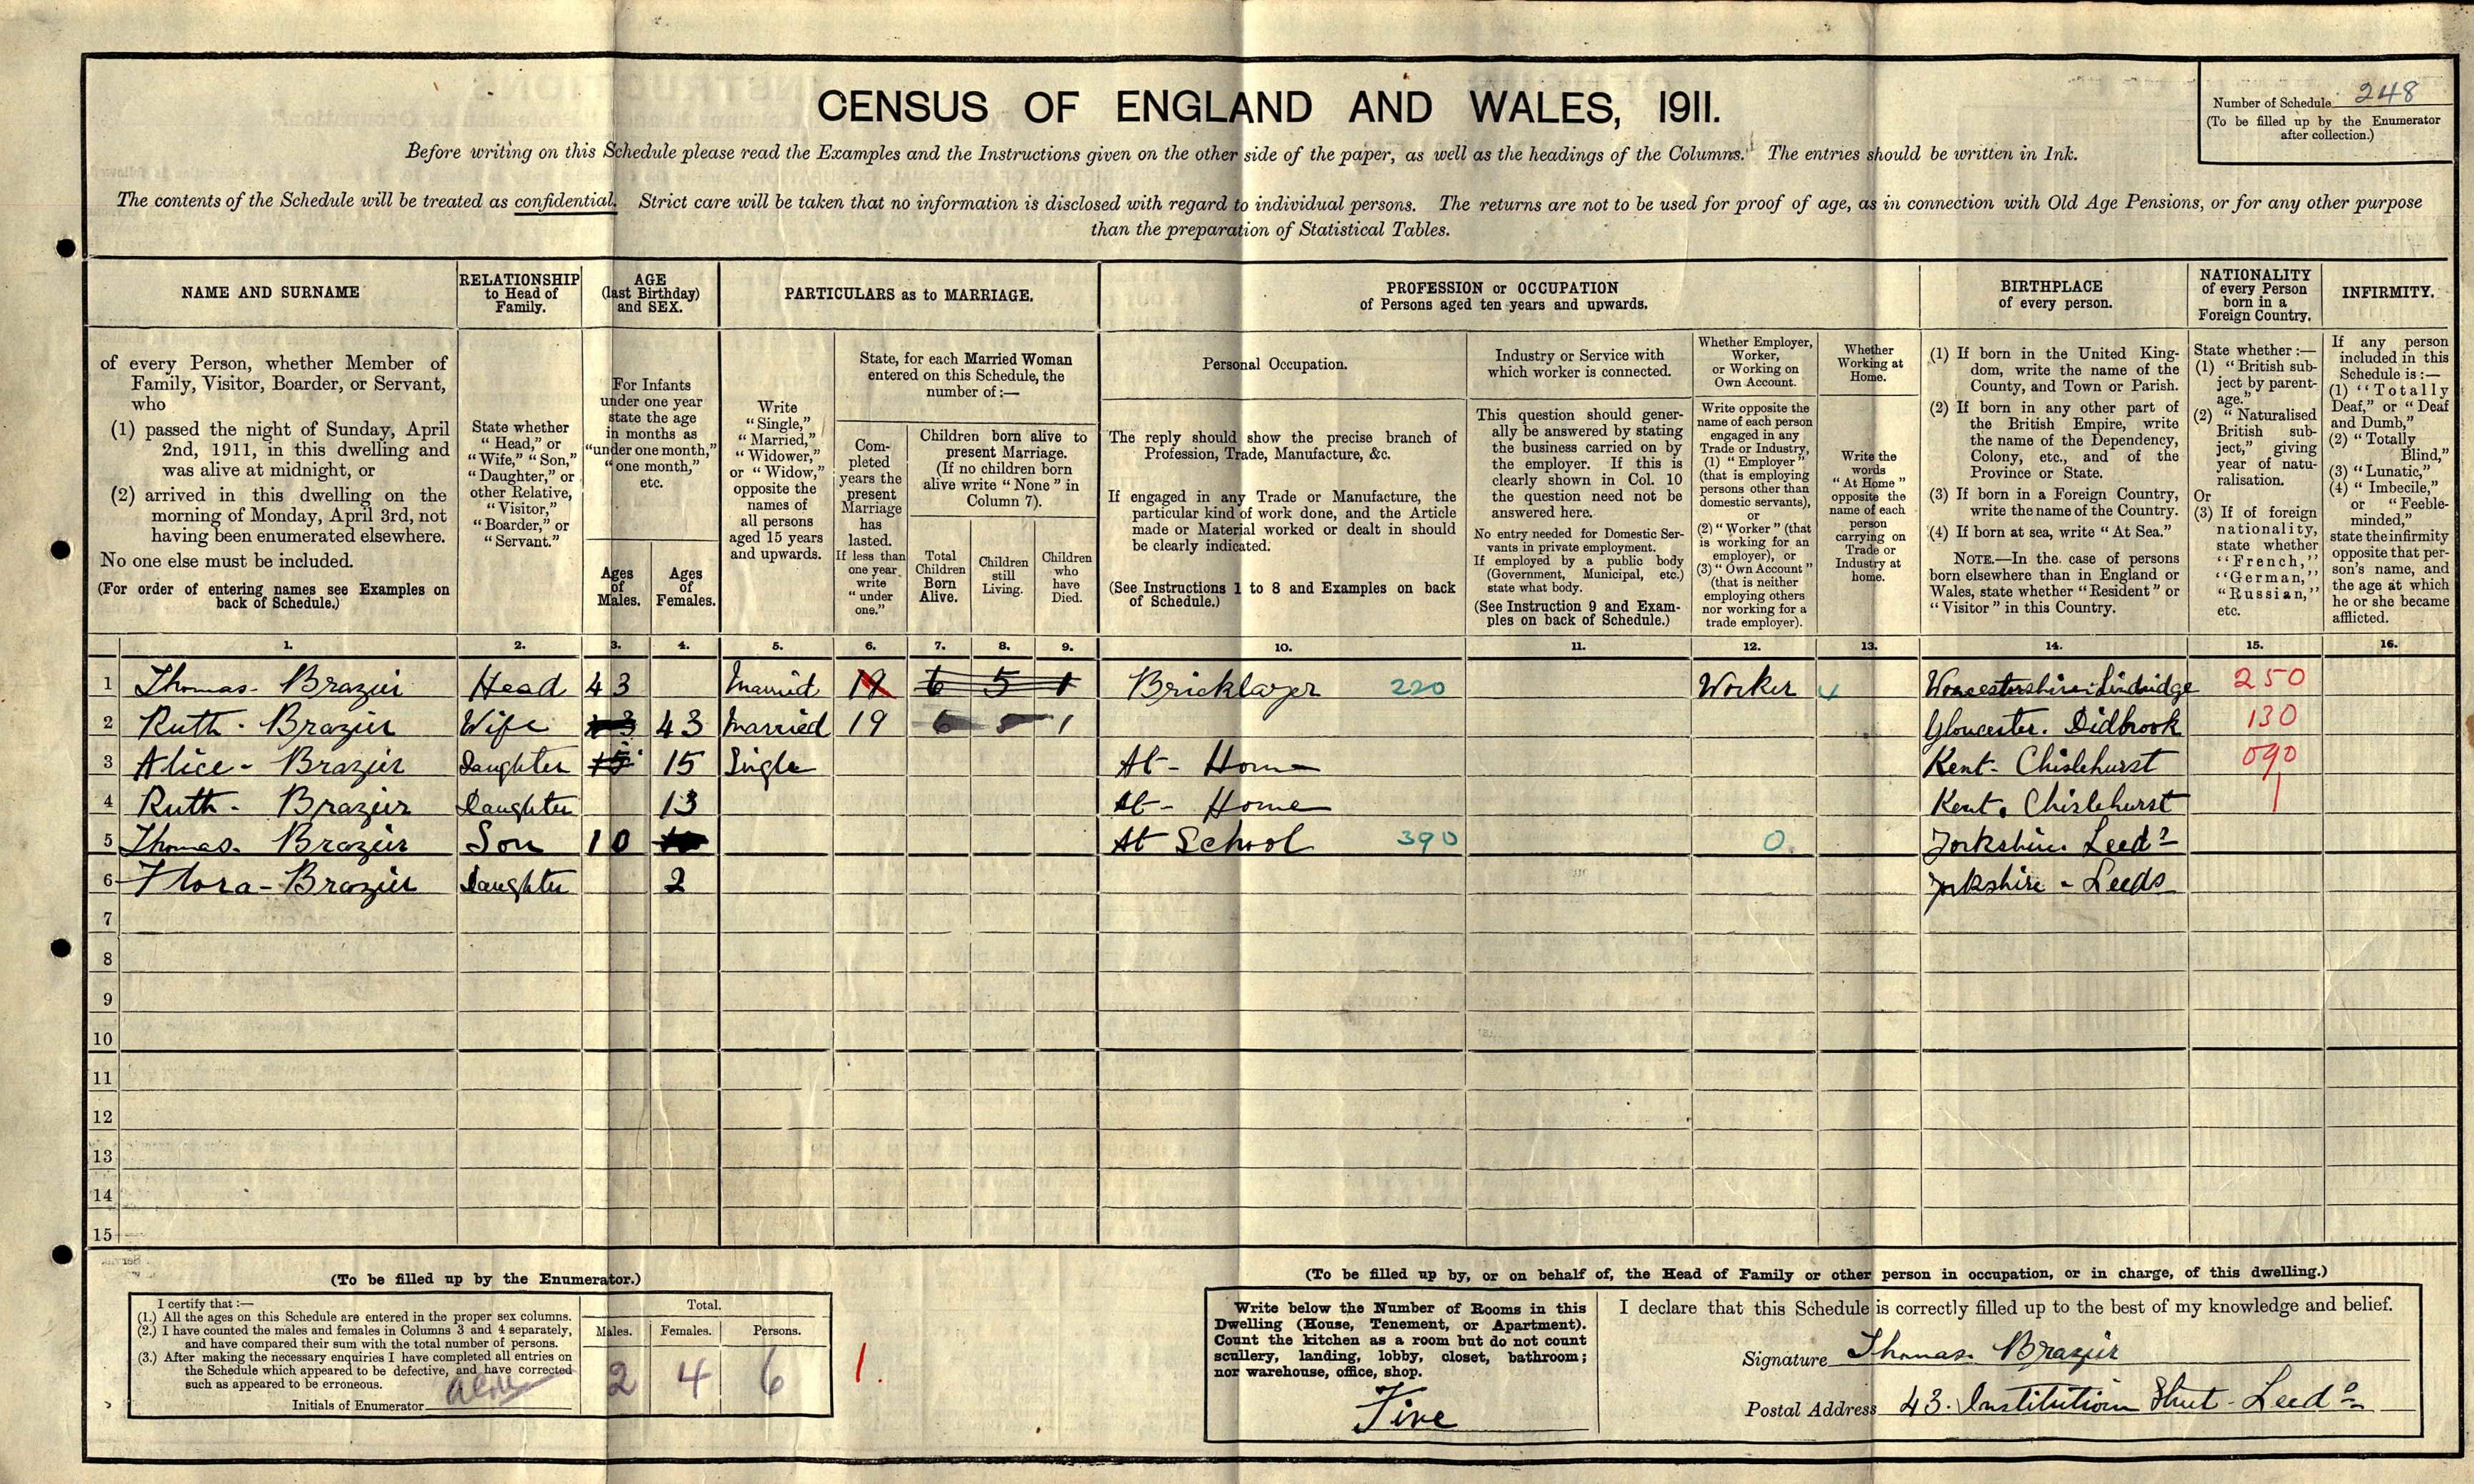 CENSUS OF ENGLAND AND WALES, 1911.
Number of Schedule 248
(To be filled up by the Enumerator
after collection.)
Before writing on this Schedule please read the Examples and the Instructions given on the other side of the paper, as well as the headings of the Columns. The entries should be written in Ink.
The contents of the Schedule will be treated as confidential. Strict care will be taken that no information is disclosed with regard to individual persons. The returns are not to be used for proof of age, as in connection with Old Age Pensions, or for any other purpose
than the preparation of Statistical Tables.
NAME AND SURNAME
of every Person, whether Member of
Family, Visitor, Boarder, or Servant,
who
(1) passed the night of Sunday, April
2nd, 1911, in this dwelling and
was alive at midnight, or
(2) arrived in this dwelling on the
morning of Monday, April 3rd, not
having been enumerated elsewhere.
No one else must be included.
(For order of entering names see Examples on
back of Schedule.)
RELATIONSHIP
to Head of
Family.
State whether
"Head," or
"Wife," "Son,"
"Daughter," or
other Relative,
"Visitor,"
"Boarder," or
"Servant."
AGE
(last Birthday)
and SEX.
For Infants
under one year
state the age
in months as
"under one month,"
"one month,"
etc.
Ages
of
Males.
Ages
of
Females.
PARTICULARS as to MARRIAGE.
Write
"Single,"
"Married,"
"Widower,"
or "Widow,"
opposite the
names of
all persons
aged 15 years
and upwards.
State, for each Married Woman
entered on this Schedule, the
number of:—
Com-
pleted
years the
present
Marriage
has
lasted.
If less than
one year
write
"under
one."
Children born alive to
present Marriage.
(If no children born
alive write "None" in
Column 7).
Total
Children
Born
Alive.
Children
still
Living.
Children
who
have
Died.
PROFESSION or OCCUPATION
of Persons aged ten years and upwards.
Personal Occupation.
The reply should show the precise branch of
Profession, Trade, Manufacture, &c.
If engaged in any Trade or Manufacture, the
particular kind of work done, and the Article
made or Material worked or dealt in should
be clearly indicated.
(See Instructions 1 to 8 and Examples on back
of Schedule.)
Industry or Service with
which worker is connected.
This question should gener-
ally be answered by stating
the business carried on by
the employer. If this is
clearly shown in Col. 10
the question need not be
answered here.
No entry needed for Domestic Ser-
vants in private employment.
If employed by a public body
(Government, Municipal, etc.)
state what body.
(See Instruction 9 and Exam-
ples on back of Schedule.)
Whether Employer,
Worker,
or Working on
Own Account.
Write opposite the
name of each person
engaged in any
Trade or Industry,
(1) "Employer"
(that is employing
persons other than
domestic servants),
or
(2) "Worker" (that
is working for an
employer), or
(3) "Own Account"
(that is neither
employing others
nor working for a
trade employer).
Whether
Working at
Home.
Write the
words
"At Home"
opposite the
name of each
person
carrying on
Trade or
Industry at
home.
BIRTHPLACE
of every person.
(1) If born in the United King-
dom, write the name of the
County, and Town or Parish.
(2) If born in any other part of
the British Empire, write
the name of the Dependency,
Colony, etc., and of the
Province or State.
(3) If born in a Foreign Country,
write the name of the Country.
(4) If born at sea, write "At Sea."
NOTE.—In the case of persons
born elsewhere than in England or
Wales, state whether "Resident" or
"Visitor" in this Country.
NATIONALITY
of every Person
born in a
Foreign Country.
State whether:—
(1) "British sub-
ject by parent-
age."
(2) "Naturalised
British sub-
ject," giving
year of natu-
ralisation.
Or
(3) If of foreign
nationality,
state whether
"French,"
"German,"
"Russian,"
etc.
INFIRMITY.
If any person
included in this
Schedule is:—
(1) "Totally
Deaf," or "Deaf
and Dumb,"
(2) "Totally
Blind,"
(3) "Lunatic,"
(4) "Imbecile,"
or "Feeble-
minded,"
state the infirmity
opposite that per-
son's name, and
the age at which
he or she became
afflicted.
1. 2. 3. 4. 5. 6. 7. 8. 9. 10. 11. 12. 13. 14. 15. 16.
1 Thomas- Brazier Head 43 Married 19 6 5 1 Bricklayer 220 Worker 4 Worcestershire-Lindridge 250
2 Ruth- Brazier Wife 43 Married 19 6 5 1 Gloucester. Didbrook 130
3 Alice- Brazier Daughter 15 15 Single At- Home Kent- Chislehurst 090
4 Ruth- Brazier Daughter 13 At- Home Kent. Chislehurst
5 Thomas- Brazier Son 10 At School 390 0 Yorkshire. Leeds
6 Flora- Brazier Daughter 2 Yorkshire - Leeds
7
8
9
10
11
12
13
14
15
(To be filled up by the Enumerator.)
I certify that:—
(1.) All the ages on this Schedule are entered in the proper sex columns.
(2.) I have counted the males and females in Columns 3 and 4 separately,
and have compared their sum with the total number of persons.
(3.) After making the necessary enquiries I have completed all entries on
the Schedule which appeared to be defective, and have corrected
such as appeared to be erroneous.
Initials of Enumerator
Total.
Males. Females. Persons.
2 4 6
1.
(To be filled up by, or on behalf of, the Head of Family or other person in occupation, or in charge, of this dwelling.)
Write below the Number of Rooms in this
Dwelling (House, Tenement, or Apartment).
Count the kitchen as a room but do not count
scullery, landing, lobby, closet, bathroom;
nor warehouse, office, shop.
Five
I declare that this Schedule is correctly filled up to the best of my knowledge and belief.
Signature Thomas. Brazier
Postal Address 43. Institution Street - Leeds